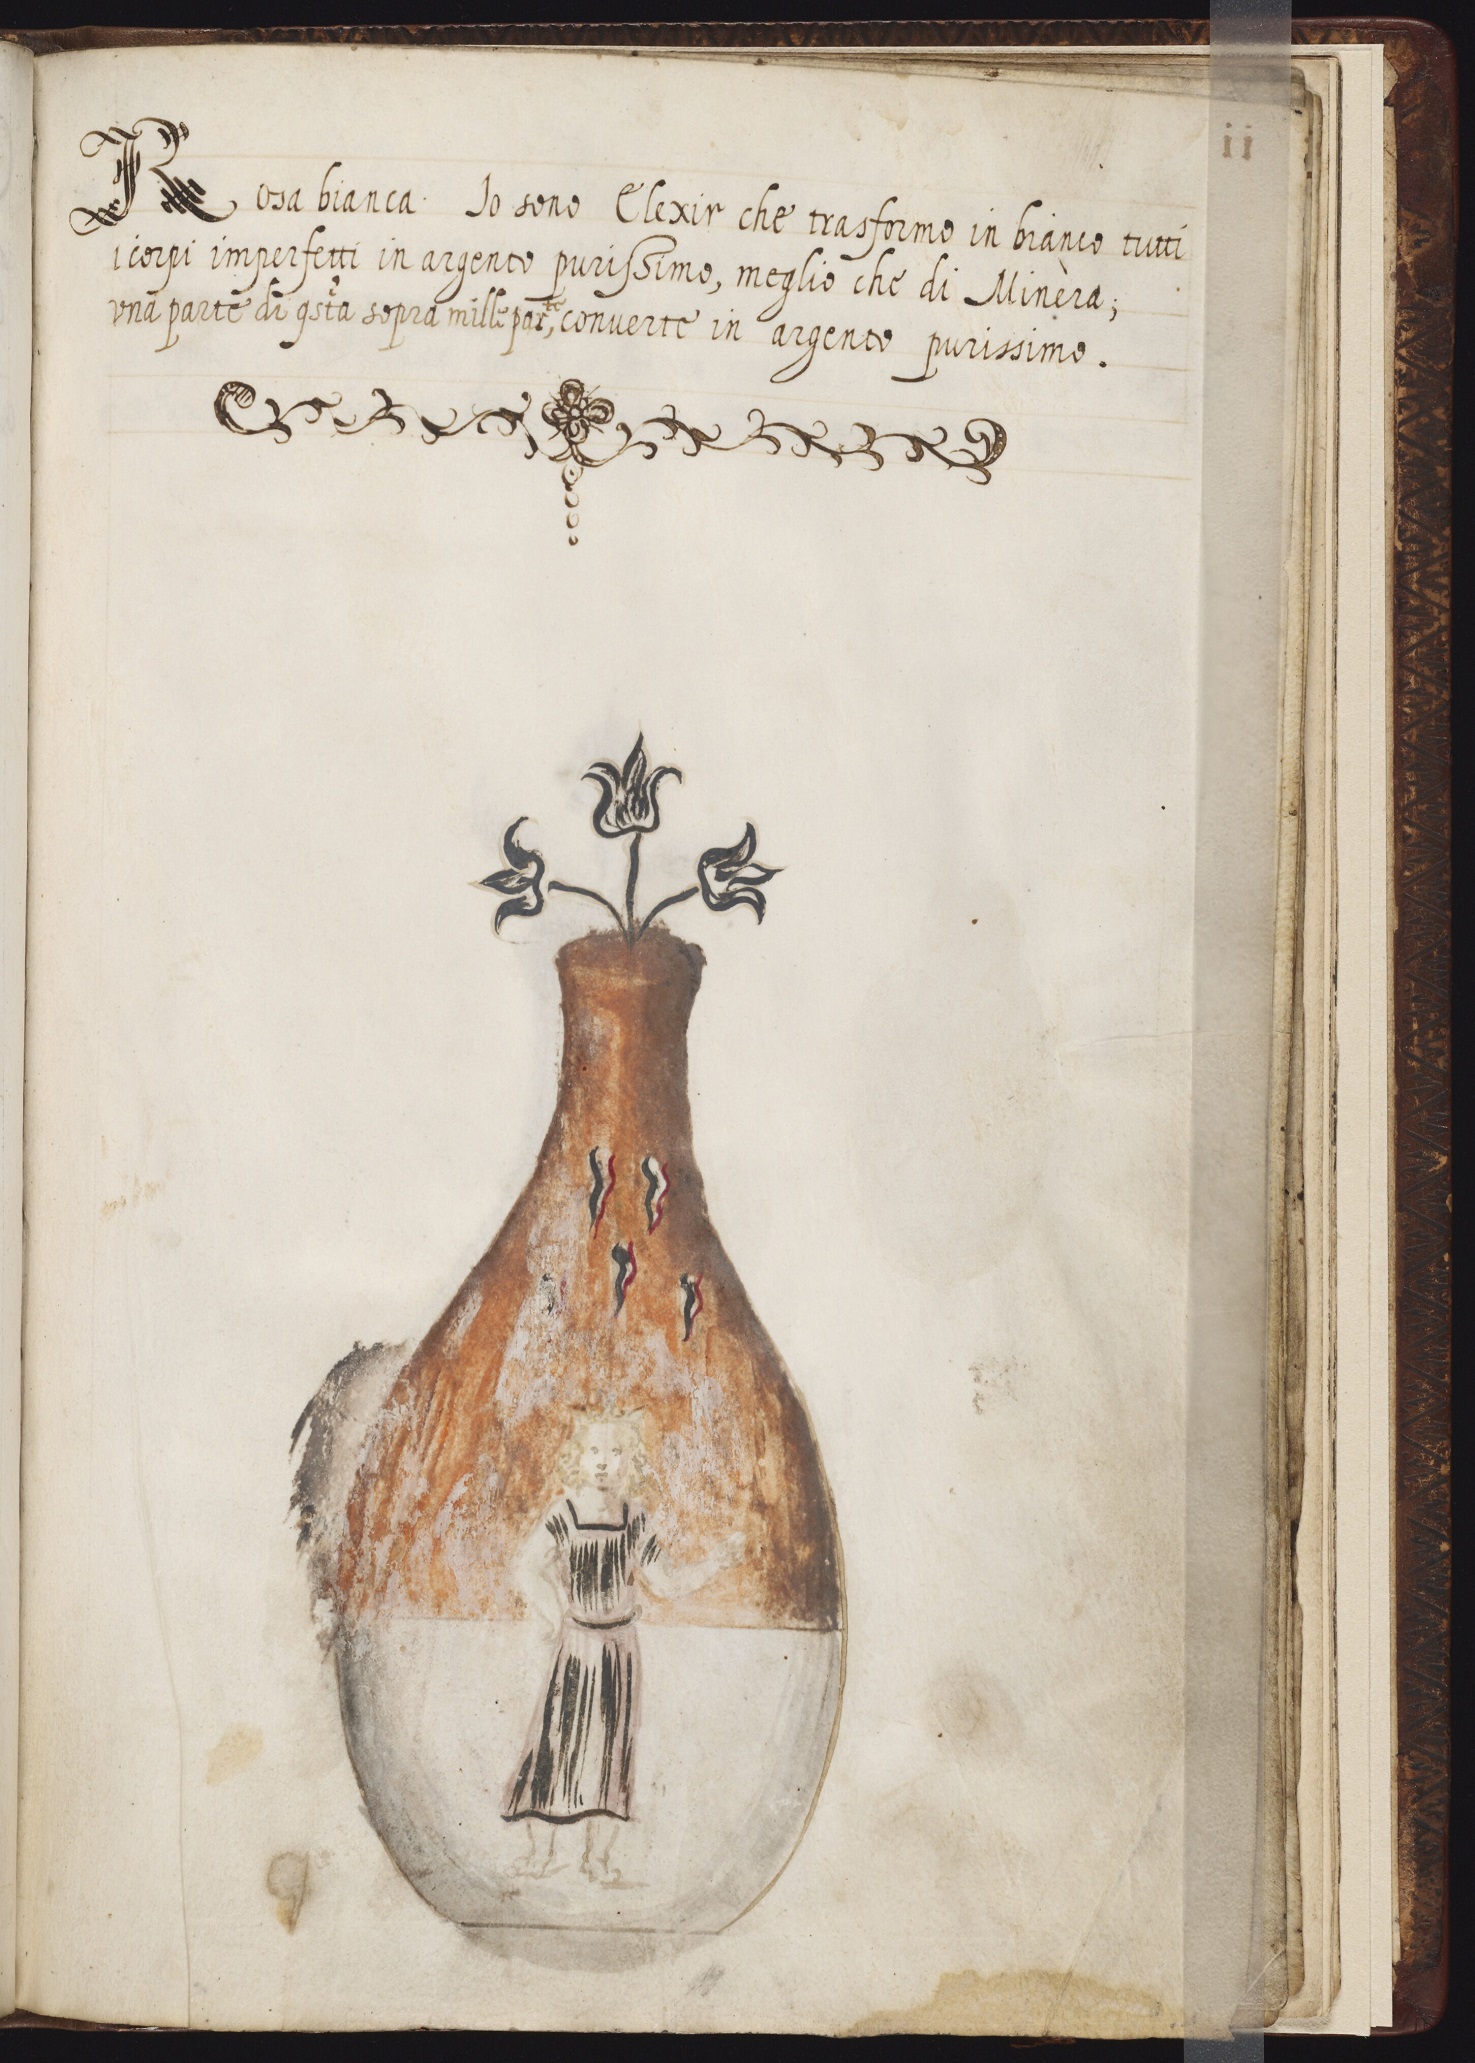 Rosa bianca. Io sono Elexir che trasformo in bianco tutti
i corpi imperfetti in argento purissimo, meglio che di Minera;
vna parte di qsta sopra mille parte, conuerte in argento purissimo.